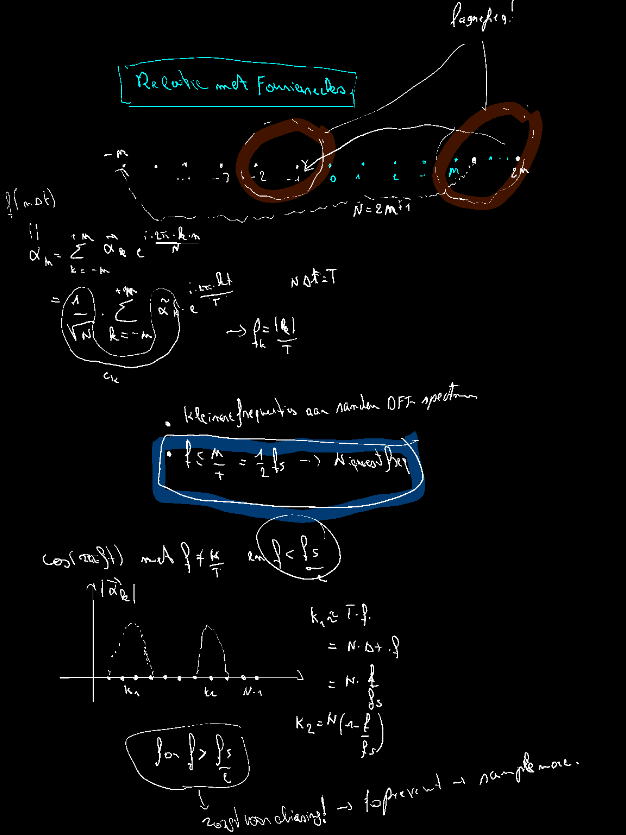 Lage freq!
Relatie met Fourierreeks
-m ... -3 -2 -1 0 1 2 ... m ... 2m
N=2m+1
f(nΔt)
||
α_n = Σ_{k=-m}^{+m} α̃_k e^{i·2π·k·n/N}
NΔt=T
= 1/√N · Σ_{k=-m}^{+m} α̃_k · e^{i·2π·kt/T}
→ f_k = |k|/T
c_k
• kleinere frequenties aan randen DFT spectrum
• f ≤ m/T = 1/2 fs → Niquest freq
cos(2πft) met f ≠ k/T en f < fs/2
|α̃_k|
k₁ k₂ N-1
k₁ ≈ T·f
= N·Δt·f
= N·f/fs
k₂ = N(1-f/fs)
for f > fs/2
↳ zorgt voor aliasing! → to prevent → sample more.